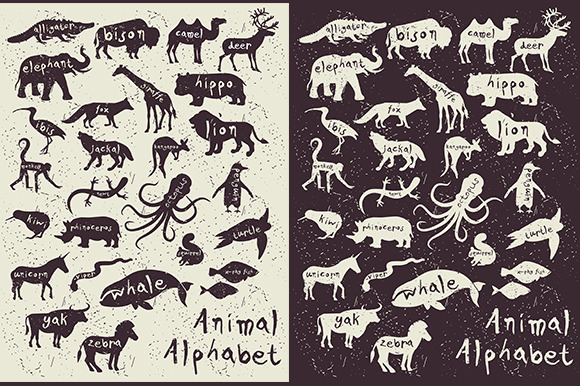 alligator
bison
camel
deer
elephant
giraffe
hippo
fox
ibis
lion
jackal
kangaroo
monkey
newt
octopus
penguin
kiwi
rhinoceros
squirrel
turtle
unicorn
viper
whale
x-ray fish
yak
zebra
Animal
Alphabet
alligator
bison
camel
deer
elephant
giraffe
hippo
fox
ibis
lion
jackal
kangaroo
monkey
newt
octopus
penguin
kiwi
rhinoceros
squirrel
turtle
unicorn
viper
whale
x-ray fish
yak
zebra
Animal
Alphabet